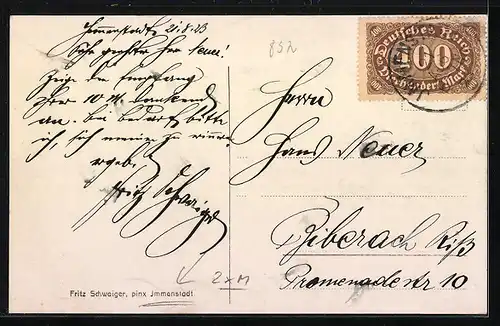 Immenstadt 21.8.23
Sehr geehrter Herr Neuer!
Zeige den Empfang
der 10 M. dankend
an. Bei Bedarf bitte
ich, sich meiner zu erinnern
ergebt.
Fritz Schwaiger
Fritz Schwaiger, pinx Jmmenstadt
2 x M
852
Deutsches Reich
400
Vierhundert Mark
Herrn
Hans Neuer
Biberach Riß
Promenadestr 10